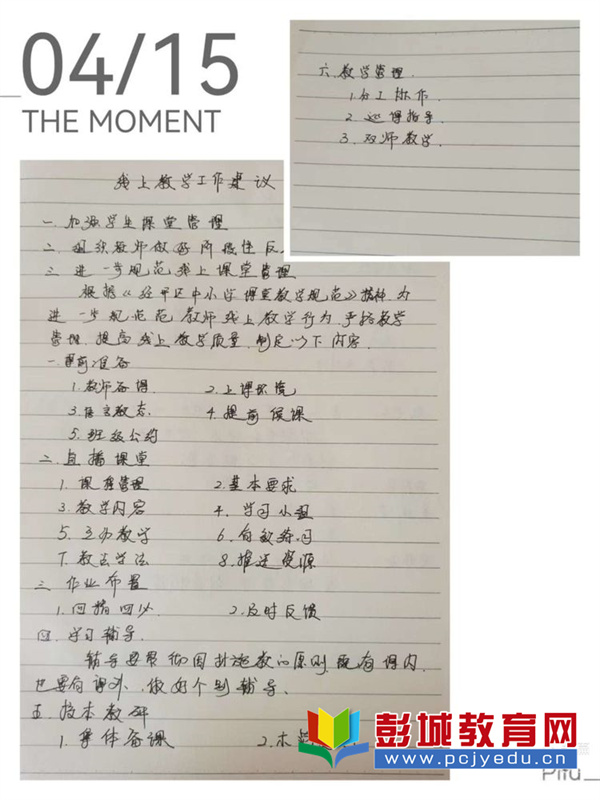 04/15
THE MOMENT
线上教学工作建议
一.加强学生课堂管理
二.组织教师做好阶段性反
三.进一步规范线上课堂管理
根据《经开区中小学课堂教学规范》精神,为
进一步规范范教师线上教学行为,严格教学
管理,提高线上教学质量,制定以下内容.
一.课前准备
1.教师备课 2.上课环境
3.语言教态 4.提前候课
5.班级公约
二.直播课堂
1.课程管理 2.基本要求
3.教学内容 4.学习小组
5.互动教学 6.有效练习
7.教法学法 8.推送资源
三.作业布置
1.四精四必 2.及时反馈
四.学习辅导.
辅导要贯彻因材施教的原则,既有课内,
也要有课外,做好个别辅导、
五.校本教研
1.集体备课 2.
六.教学管理.
1.分工协作.
2.巡课指导
3.双师教学.
彭城教育网
www.pcjyedu.cn